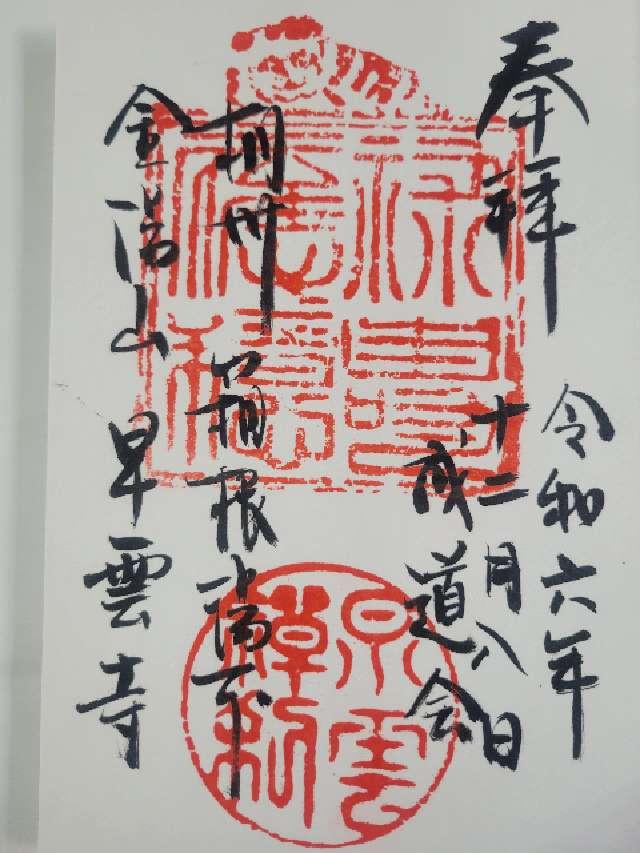 奉拝
令和六年
十二月八日
成道会
相州 箱根湯下
金湯山 早雲寺
禄寿応穏